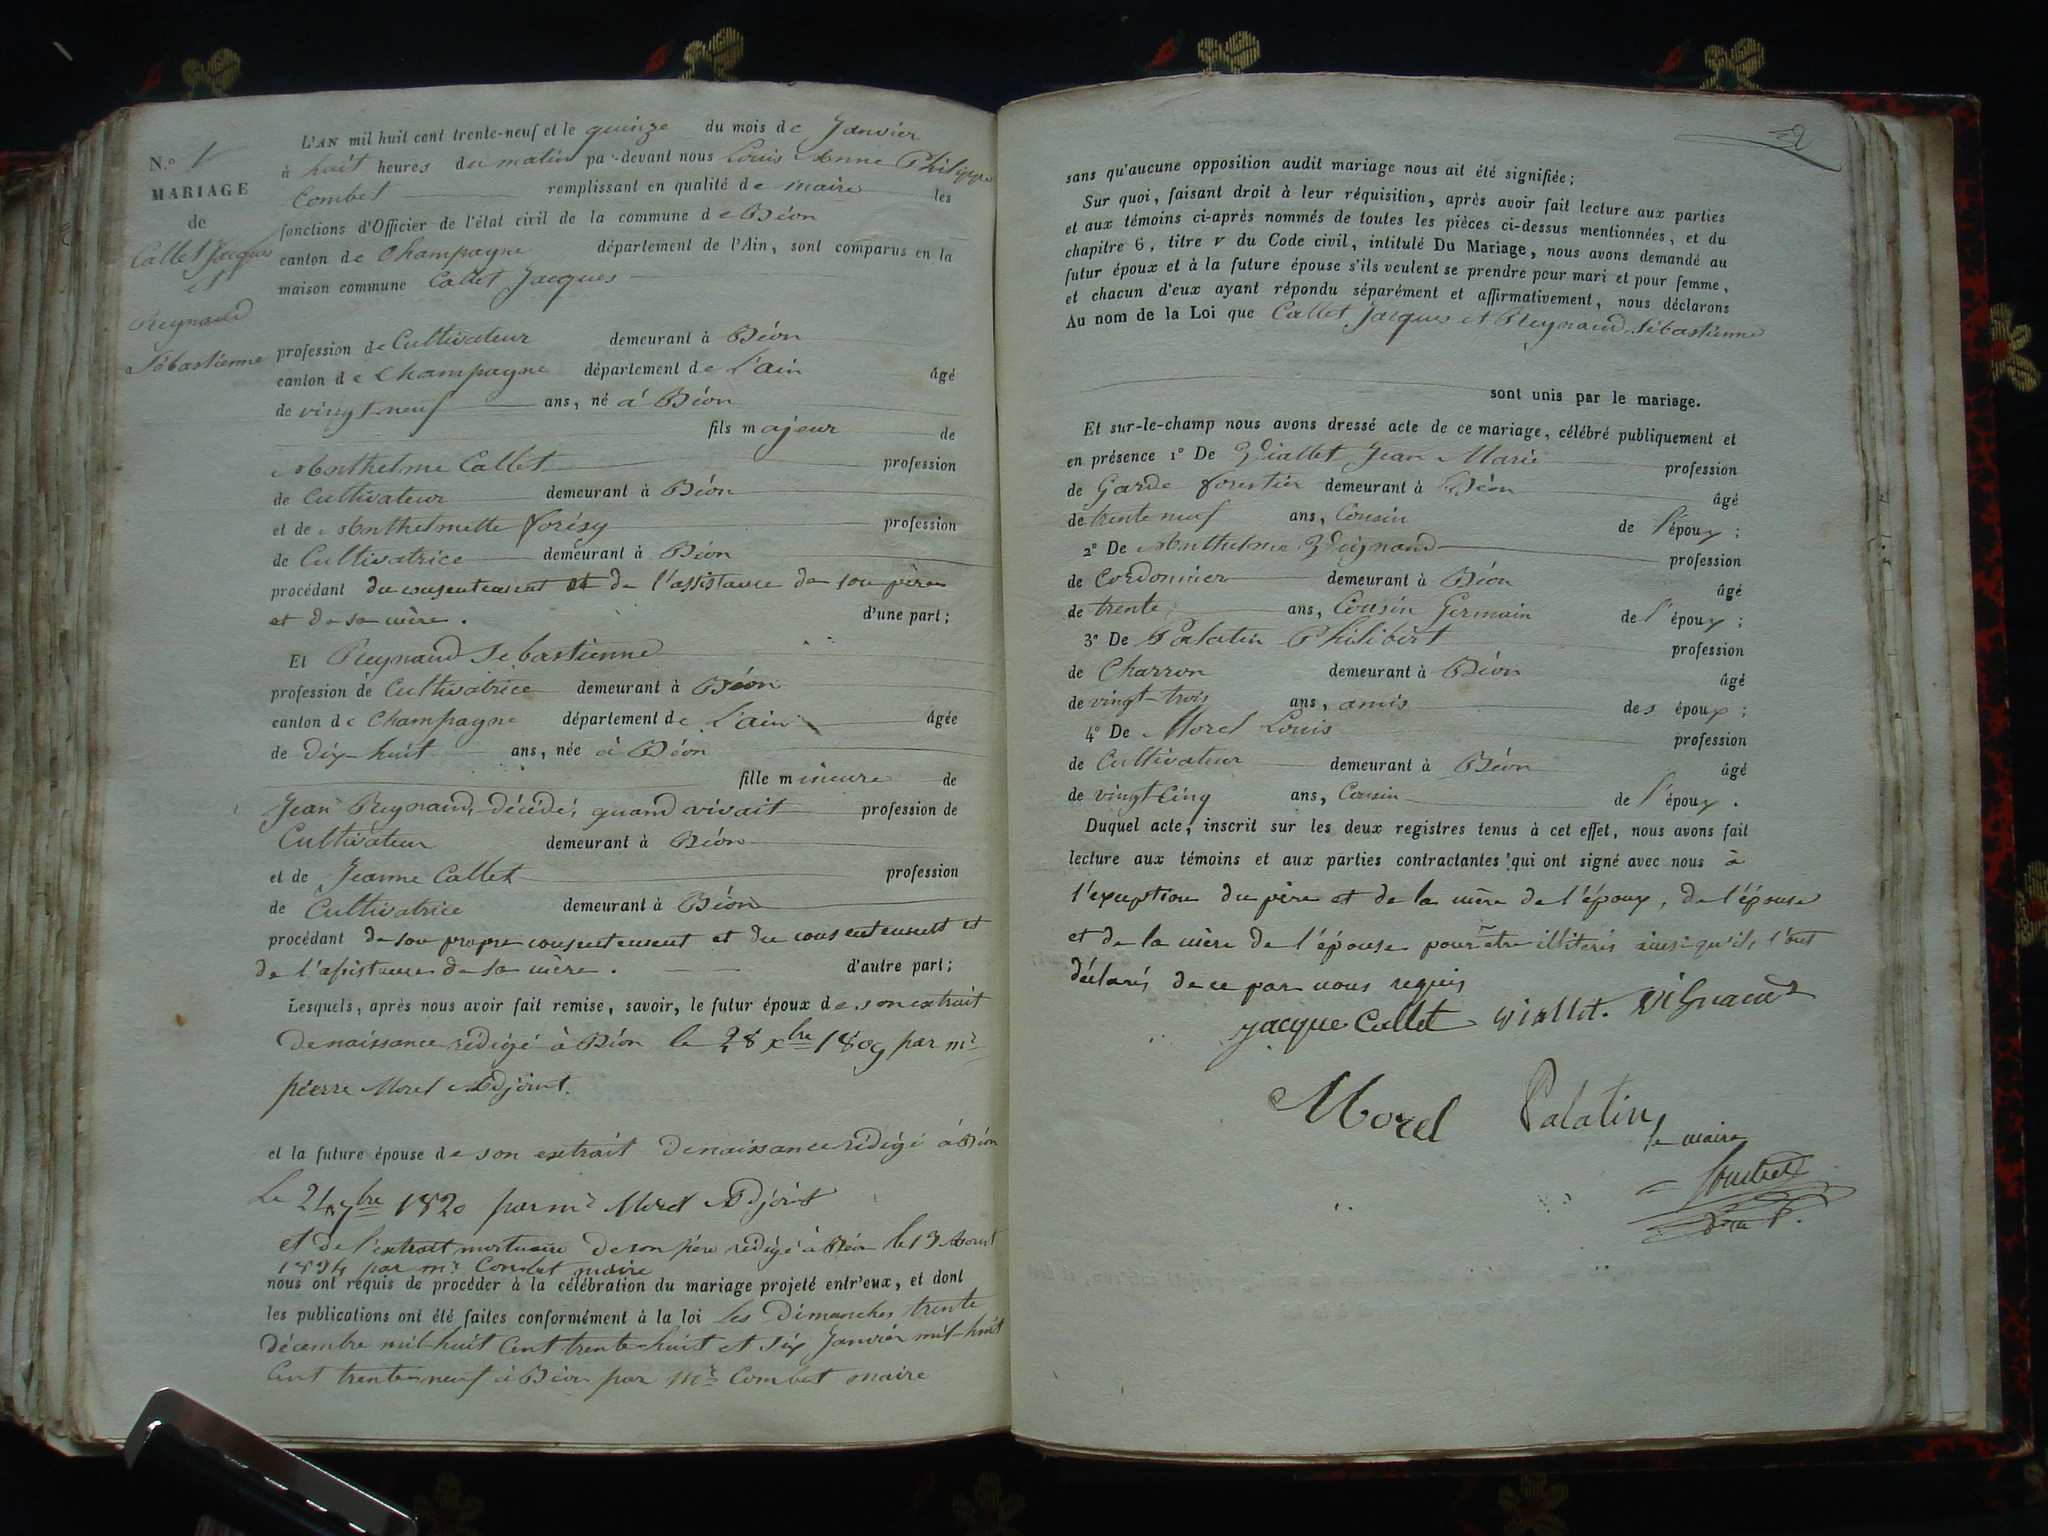 N.º 1
MARIAGE
de
Callet Jacques
et
Reynaud
Sébastienne
L'AN mil huit cent trente-neuf et le quinze du mois de Janvier
à huit heures du matin par-devant nous Louis Anne Philippe
Combet remplissant en qualité de maire les
fonctions d'Officier de l'état civil de la commune de Béon
canton de Champagne département de l'Ain, sont comparus en la
maison commune Callet Jacques
profession de Cultivateur demeurant à Béon
canton de Champagne département de L'ain âgé
de vingt neuf ans, né à Béon
fils majeur de
Anthelme Callet profession
de Cultivateur demeurant à Béon
et de Anthelmette Forésy profession
de Cultivatrice demeurant à Béon
procédant du consentement et de l'assistance de son père
et de sa mère. d'une part;
Et Reynaud Sebastienne
profession de Cultivatrice demeurant à Béon
canton de Champagne département de L'ain âgée
de dix-huit ans, née à Béon
fille mineure de
Jean Reynaud, décédé, quand vivait profession de
Cultivateur demeurant à Béon
et de Jeanne Callet profession
de Cultivatrice demeurant à Béon
procédant de son propre consentement et du consentement et
de l'assistance de sa mère. d'autre part;
Lesquels, après nous avoir fait remise, savoir, le futur époux de son extrait
de naissance rédigé à Béon le 28 xbre 1809 par mr
pierre Morel Adjoint.
et la future épouse de son extrait de naissance rédigé à Béon
Le 24 7bre 1820 par mr Morel Adjoint
et de l'extrait mortuaire de son père rédigé à Béon le 13 Aoust
1834 par mr Combet maire
nous ont requis de procéder à la célébration du mariage projeté entr'eux, et dont
les publications ont été faites conformément à la loi les Dimanches trente
décembre mil huit Cent trente-huit et six Janvier mil-huit
Cent trente-neuf à Béon par mr Combet maire
2
sans qu'aucune opposition audit mariage nous ait été signifiée;
Sur quoi, faisant droit à leur réquisition, après avoir fait lecture aux parties
et aux témoins ci-après nommés de toutes les pièces ci-dessus mentionnées, et du
chapitre 6, titre v du Code civil, intitulé Du Mariage, nous avons demandé au
futur époux et à la future épouse s'ils veulent se prendre pour mari et pour femme,
et chacun d'eux ayant répondu séparément et affirmativement, nous déclarons
Au nom de la Loi que Callet Jacques et Reynaud Sébastienne
sont unis par le mariage.
Et sur-le-champ nous avons dressé acte de ce mariage, célébré publiquement et
en présence 1º De Viallet Jean Marie profession
de Garde forestier demeurant à Béon âgé
de trente neuf ans, Cousin de l'époux;
2º De Anthelme Vuignaud profession
de Cordonnier demeurant à Béon âgé
de trente ans, Cousin Germain de l'époux;
3º De Palatin Philibert profession
de Charron demeurant à Béon âgé
de vingt-trois ans, amis des époux;
4º De Morel Louis profession
de Cultivateur demeurant à Béon âgé
de vingt Cinq ans, Cousin de l'époux.
Duquel acte, inscrit sur les deux registres tenus à cet effet, nous avons fait
lecture aux témoins et aux parties contractantes qui ont signé avec nous à
l'exception du père et de la mère de l'époux, de l'épouse
et de la mère de l'épouse pour être illiterés ainsi qu'ils l'ont
déclarés de ce par nous requis
Jacque Callet Viallet. Vignaud
Morel Palatin
le maire
Combet